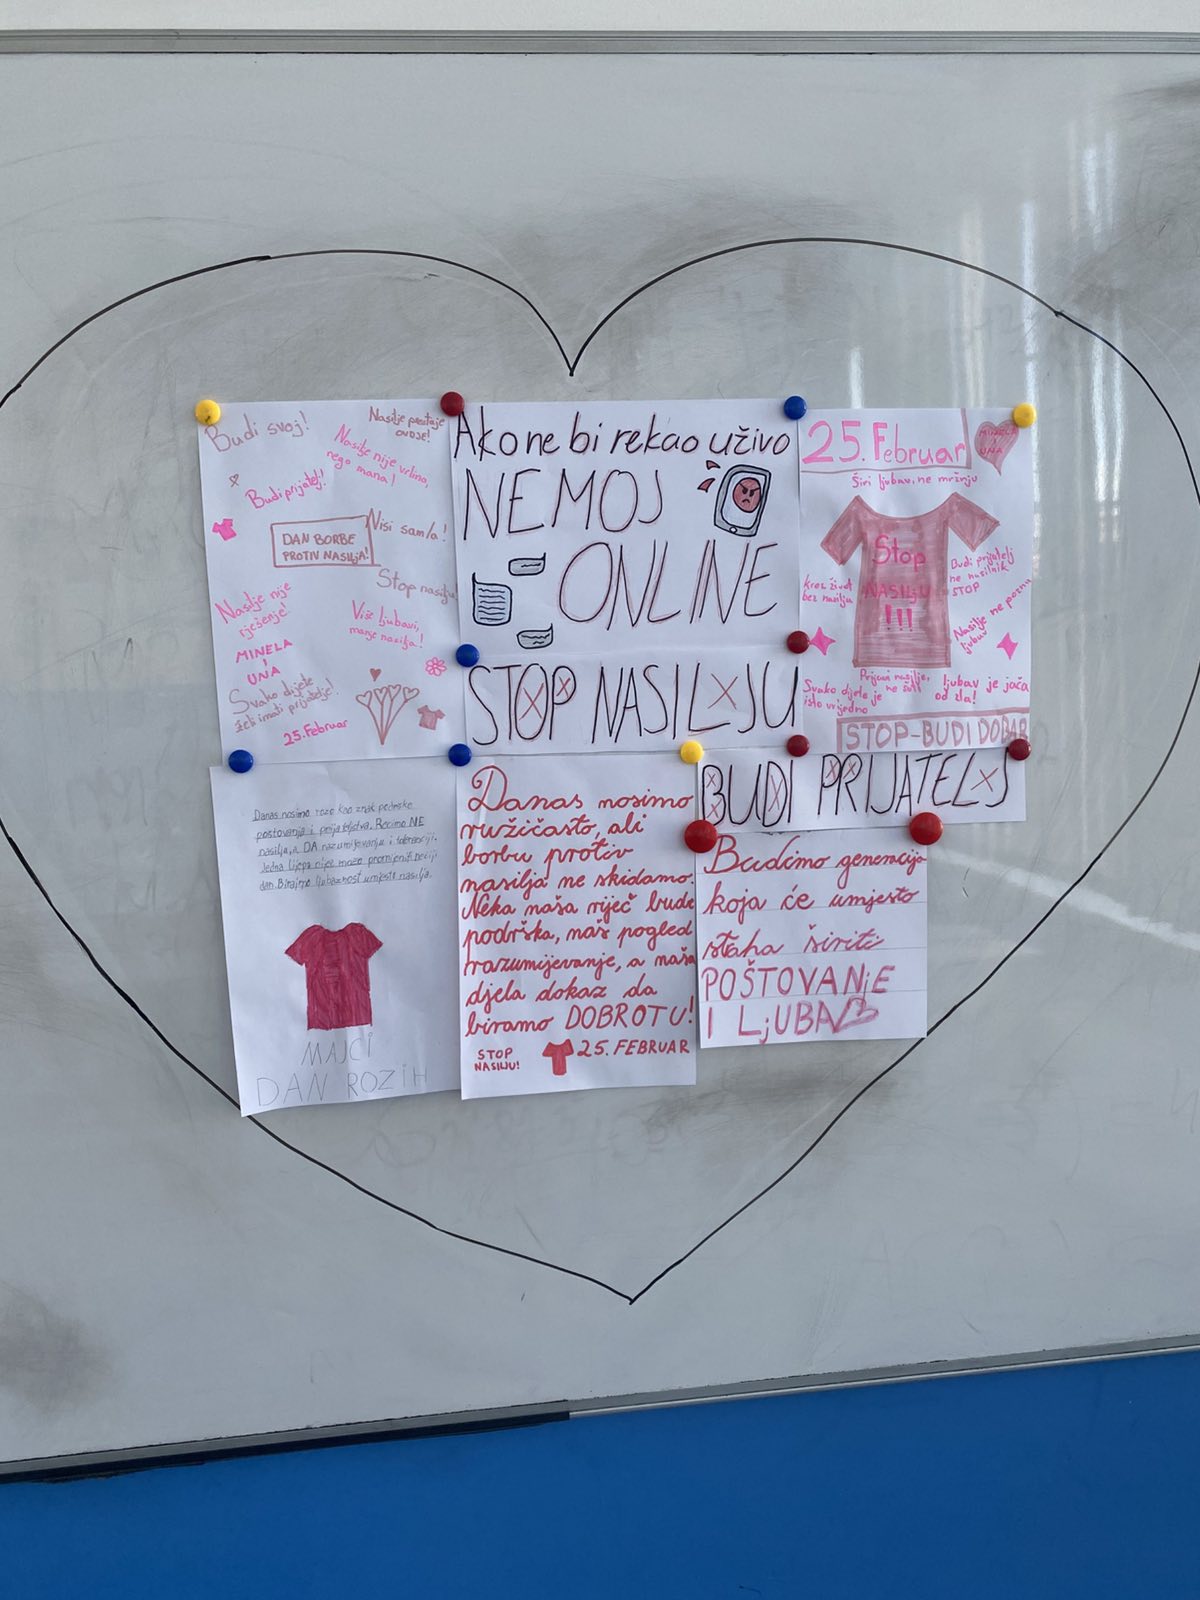 Budi svoj!
Nasilje prestaje
ovdje!
Nasilje nije vrlina,
nego mana!
Budi prijatelj!
Nisi sam/a!
DAN BORBE
PROTIV NASILJA!
Stop nasilju
Nasilje nije
rješenje!
Više ljubavi,
manje nasilja!
MINELA
I
UNA
Svako dijete
želi imati prijatelje!
25. Februar
Ako ne bi rekao uživo
NEMOJ
ONLINE
STOP NASILJU
25. Februar
MINELA
I
UNA
Širi ljubav, ne mržnju
Stop
NASILJU
!!!
kroz život
bez nasilja
Budi prijatelj
ne nasilnik
STOP
Nasilje ne pozna
ljubav
Prijavi nasilje,
ne šuti
Svako dijete je
isto vrijedno
ljubav je jača
od zla!
STOP-BUDI DOBAR
BUDI PRIJATELJ
Danas nosimo roze kao znak podrške
poštovanja i prijateljstva. Recimo NE
nasilju, a DA razumijevanju i toleranciji.
Jedna lijepa riječ može promijeniti nečiji
dan. Birajmo ljubaznost umjesto nasilja.
MAJCI
DAN ROZIH
Danas nosimo
ružičasto, ali
borbu protiv
nasilja ne skidamo.
Neka naša riječ bude
podrška, naš pogled
razumijevanje, a naša
djela dokaz da
biramo DOBROTU!
STOP
NASILJU!
25. FEBRUAR
Budimo generacija
koja će umjesto
staha širiti
POŠTOVANjE
I LjUBAV